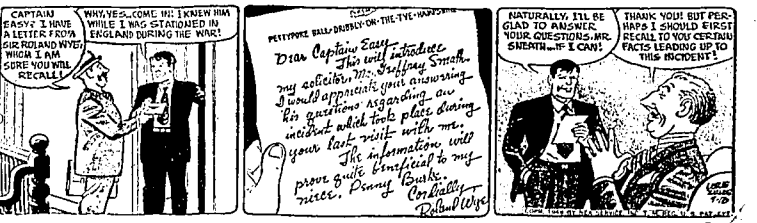 CAPTAIN
EASY? I HAVE
A LETTER FROM
SIR ROLAND WYE,
WHOM I AM
SURE YOU WILL
RECALL!
WHY, YES...COME IN! I KNEW HIM
WHILE I WAS STATIONED IN
ENGLAND DURING THE WAR!
PETTYPORE HALL-DRIBBLY-ON-THE-TYE-
Dear Captain Easy—
This will introduce
my solicitor, Mr. Sneath.
I would appreciate your answering
his questions regarding an
incident which took place during
your last visit with me.
The information will
prove quite beneficial to my
niece, Penny Burke.
Cordially
Roland Wye
NATURALLY, I'LL BE
GLAD TO ANSWER
YOUR QUESTIONS, MR.
SNEATH...IF I CAN!
THANK YOU! BUT PER-
HAPS I SHOULD FIRST
RECALL TO YOU CERTAIN
FACTS LEADING UP TO
THIS INCIDENT!